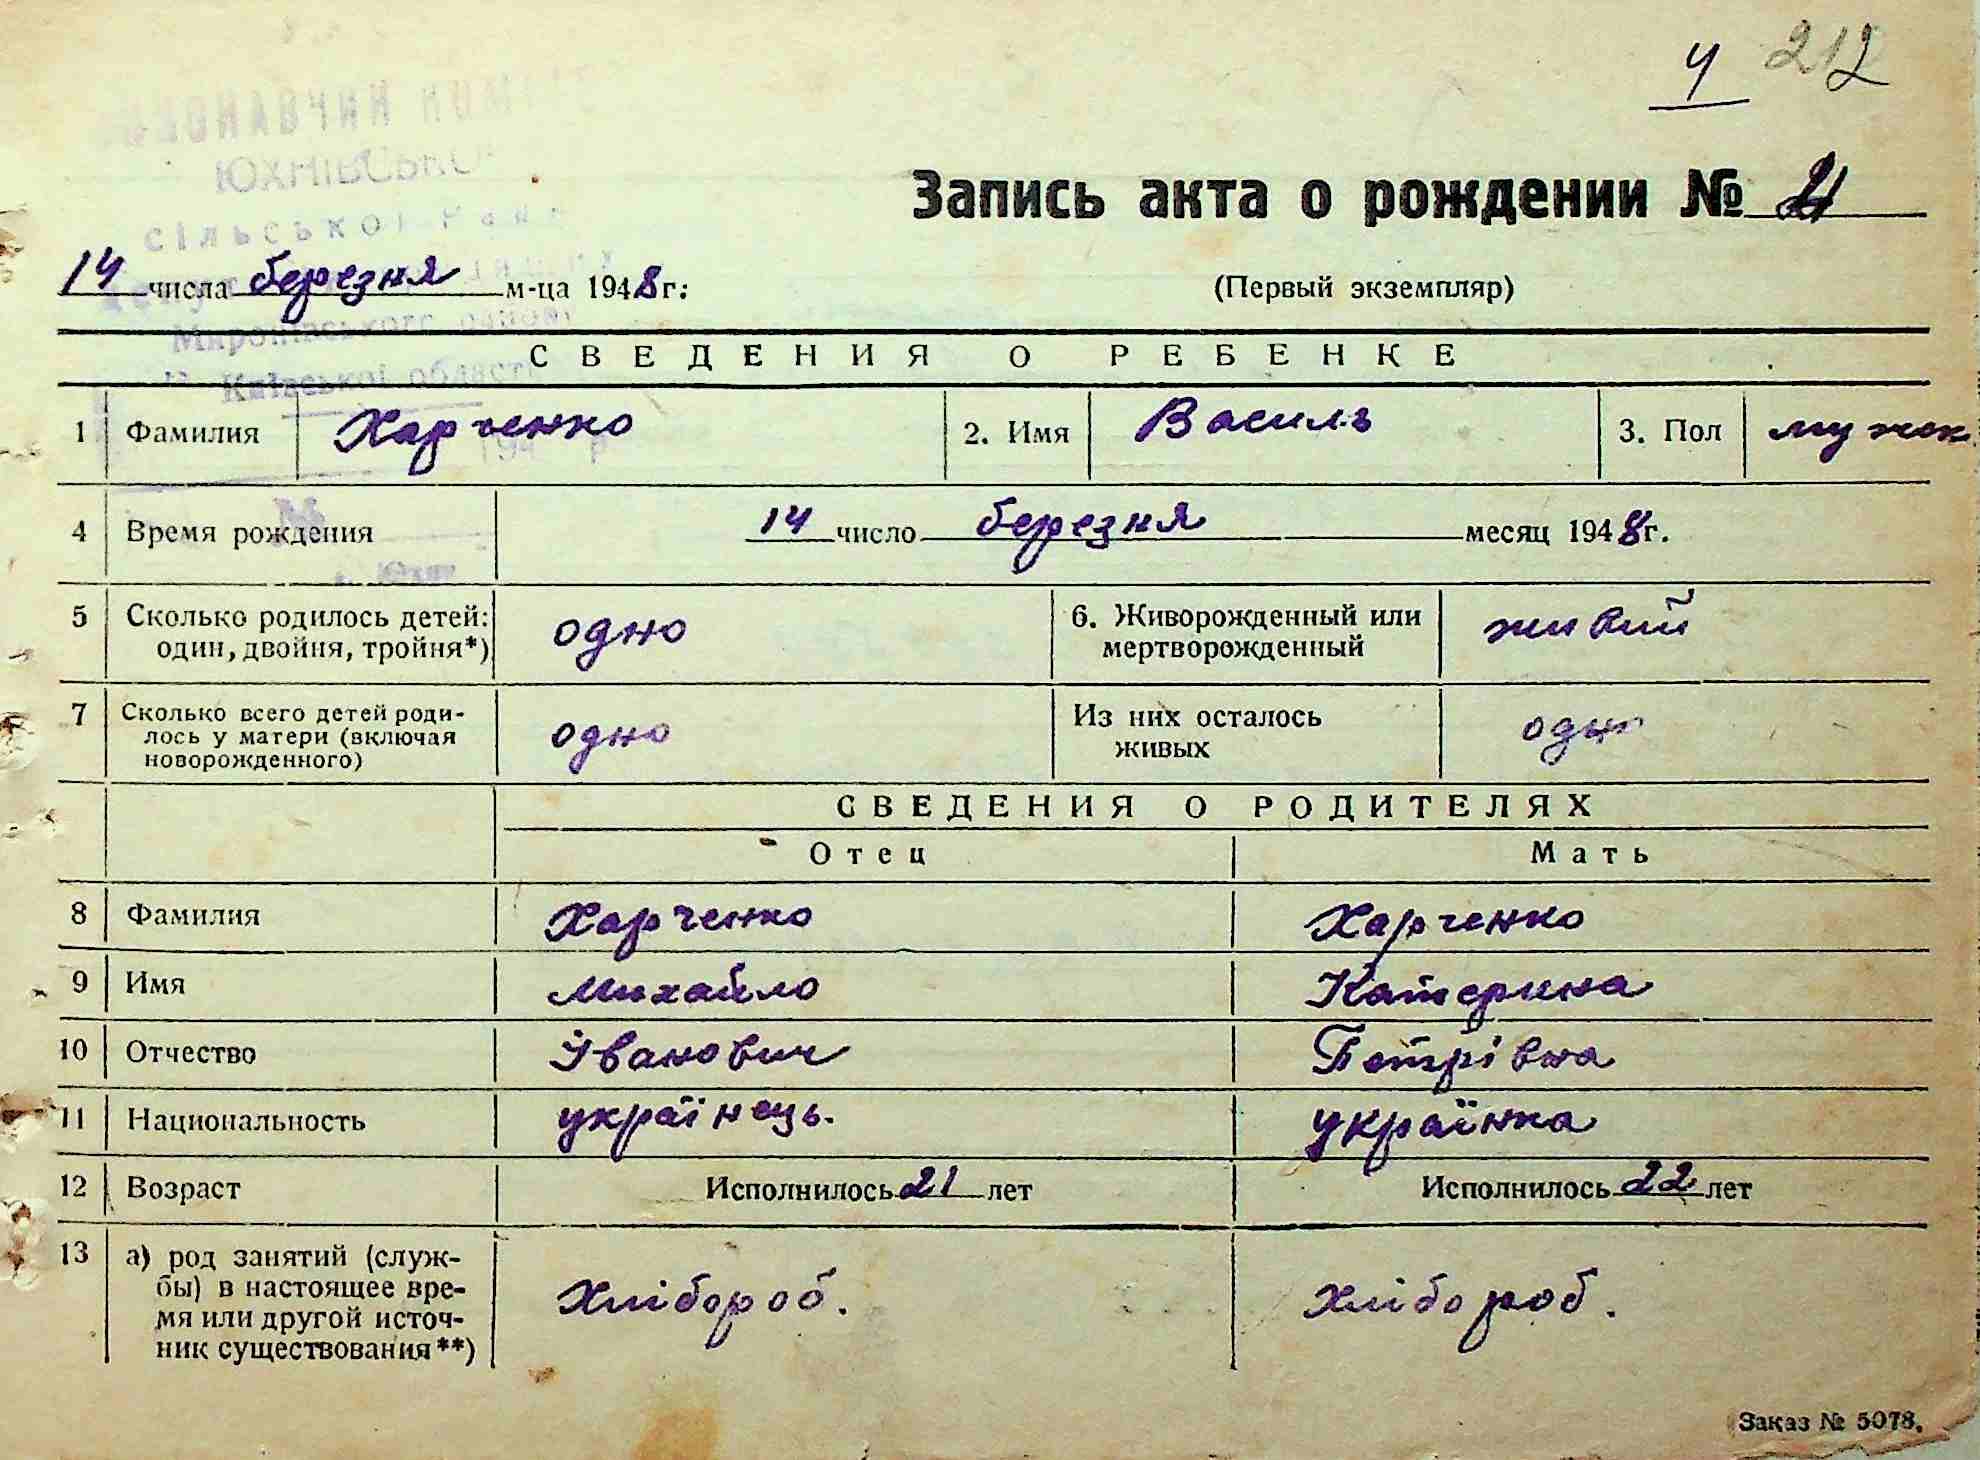 У 212
Запись акта о рождении № 21
ЮХНІВСЬКО
сільської Ради
14 числа березня м-ца 1948 г.:
(Первый экземпляр)
СВЕДЕНИЯ О РЕБЕНКЕ
Київської області
1 Фамилия Харченко 2. Имя Василь 3. Пол мужск
4 Время рождения 14 число березня месяц 1948 г.
5 Сколько родилось детей: один, двойня, тройня*) одно 6. Живорожденный или мертворожденный живий
7 Сколько всего детей родилось у матери (включая новорожденного) одно Из них осталось живых одно
СВЕДЕНИЯ О РОДИТЕЛЯХ
Отец Мать
8 Фамилия Харченко Харченко
9 Имя Михайло Катерина
10 Отчество Іванович Петрівна
11 Национальность українець. українка
12 Возраст Исполнилось 21 лет Исполнилось 22 лет
13 а) род занятий (служ-
бы) в настоящее вре-
мя или другой источ-
ник существования**) Хлібороб. Хлібороб.
Заказ № 5078.